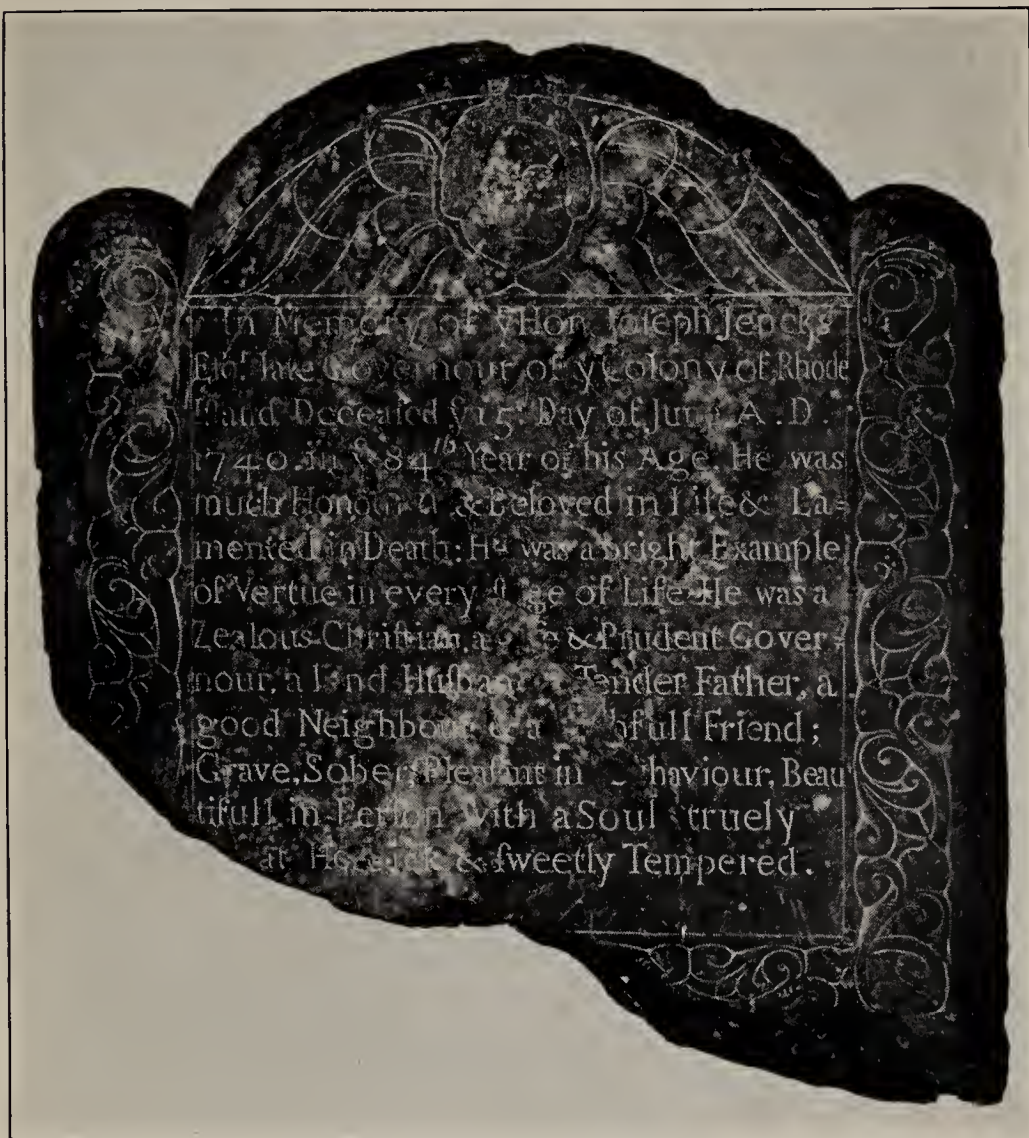 In Memory of yͤ Hon. Joseph Jencks
Eſqʳ. late Governour of y Colony of Rhode
Iſland Deceaſed yͤ 15 Day of June A.D.
1740. in yͤ 84ᵗʰ Year of his Age. He was
much Honour'd & Beloved in Life & La=
mented in Death: He was a bright Example
of Vertue in every Stage of Life He was a
Zealous Chriſtian, a & Prudent Gover=
nour, a Kind Huſband Tender Father, a
good Neighbour & a Friend;
Grave, Sober, Pleaſant in Behaviour, Beau
tifull in Perſon with a Soul truely
Heroick & ſweetly Tempered.